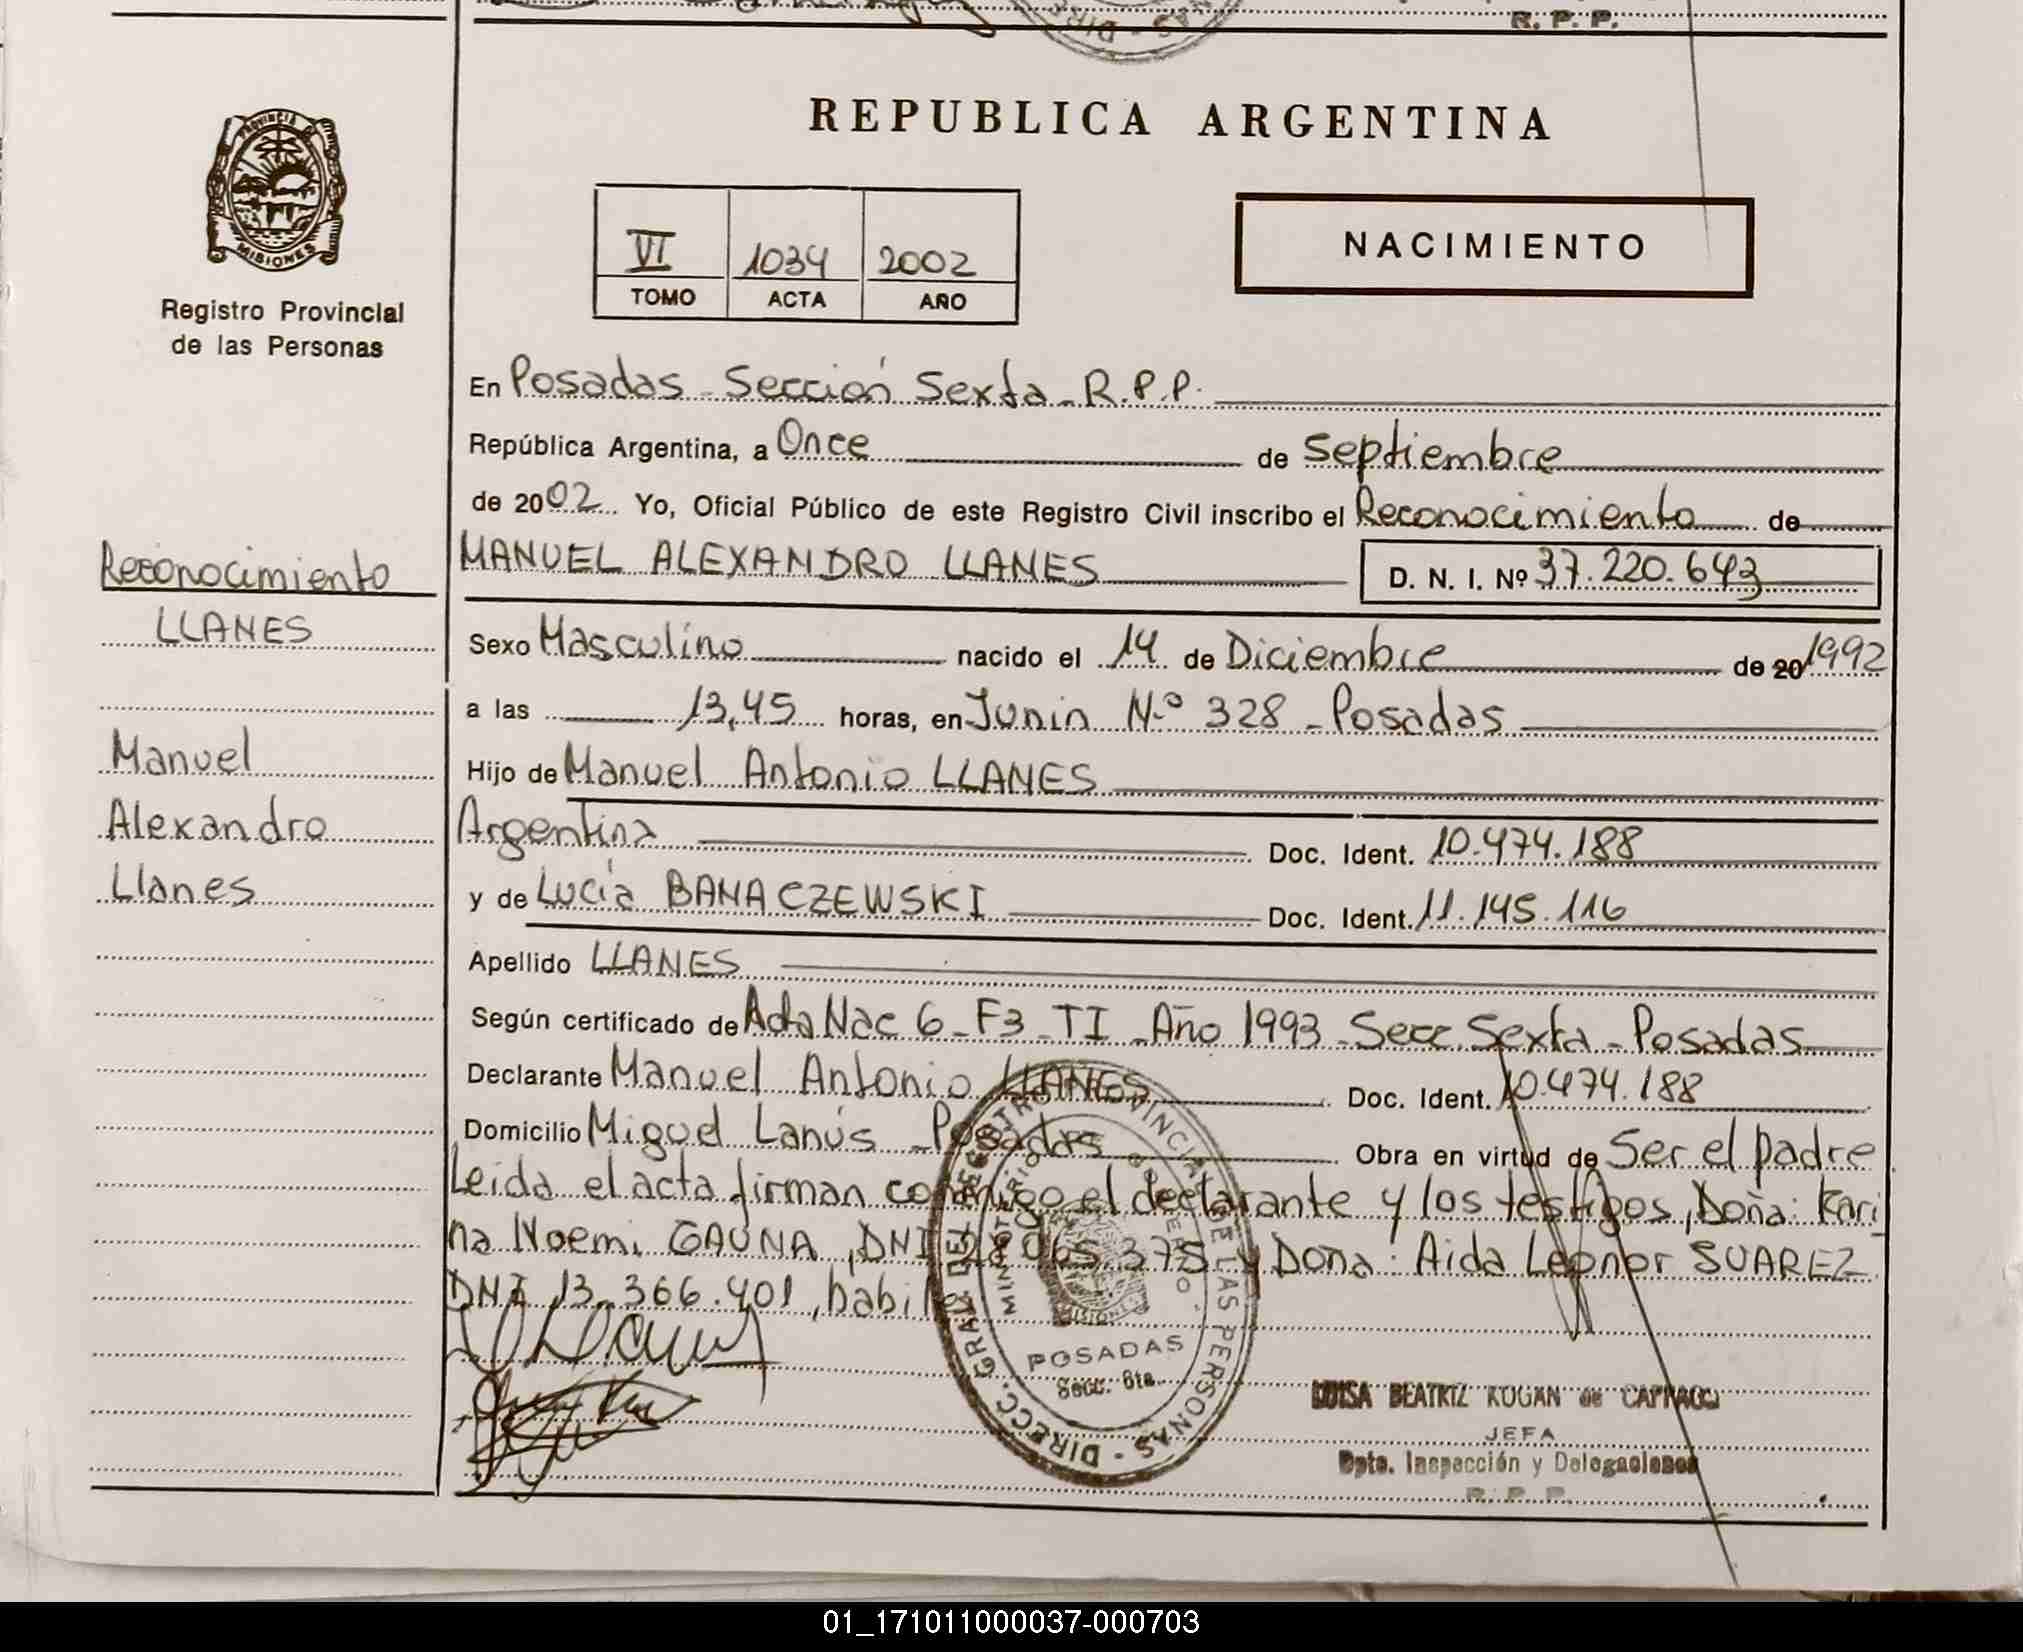 R. P. P.
REPUBLICA ARGENTINA
PROVINCIA DE
MISIONES
Registro Provincial
de las Personas
VI 1034 2002
TOMO ACTA AÑO
NACIMIENTO
En Posadas - Sección Sexta - R.P.P.
República Argentina, a Once de Septiembre
de 2002 Yo, Oficial Público de este Registro Civil inscribo el Reconocimiento de
MANUEL ALEXANDRO LLANES D. N. I. Nº 37.220.643
Reconocimiento
LLANES
Manuel
Alexandro
Llanes
Sexo Masculino nacido el 14 de Diciembre de 20 1992
a las 13,45 horas, en Junin N.º 328 - Posadas
Hijo de Manuel Antonio LLANES
Argentina Doc. Ident. 10.474.188
y de Lucía BANACZEWSKI Doc. Ident. 11.145.116
Apellido LLANES
Según certificado de Acta Nac 6 - F3 - TI - Año 1993 - Secc. Sexta - Posadas
Declarante Manuel Antonio LLANES Doc. Ident. 10.474.188
Domicilio Miguel Lanús - Posadas Obra en virtud de Ser el padre
Leida el acta firman conmigo el declarante y los testigos, Doña: Kari
na Noemi GAUNA, DNI 375 y Doña: Aida Leonor SUAREZ
DNI 13.366.401, habiles
DIRECC. GRAL. DEL REGISTRO PROVINCIAL DE LAS PERSONAS
MINISTERIO DE GOBIERNO
POSADAS
Secc. 6ta.
LUISA BEATRIZ KOGAN de
JEFA
Dpto. Inspección y Delegaciones
R. P. P.
01_171011000037-000703